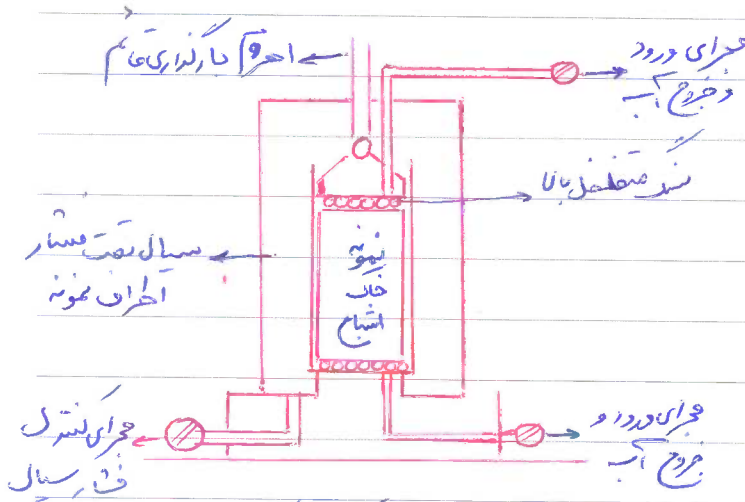 اهرم بارگذاری قائم
مجرای ورود
و خروج آب
سنگ متخلخل بالا
سیال تحت فشار
اطراف نمونه
نمونه
خاک
اشباع
مجرای کنترل
فشار سیال
مجرای ورود و
خروج آب